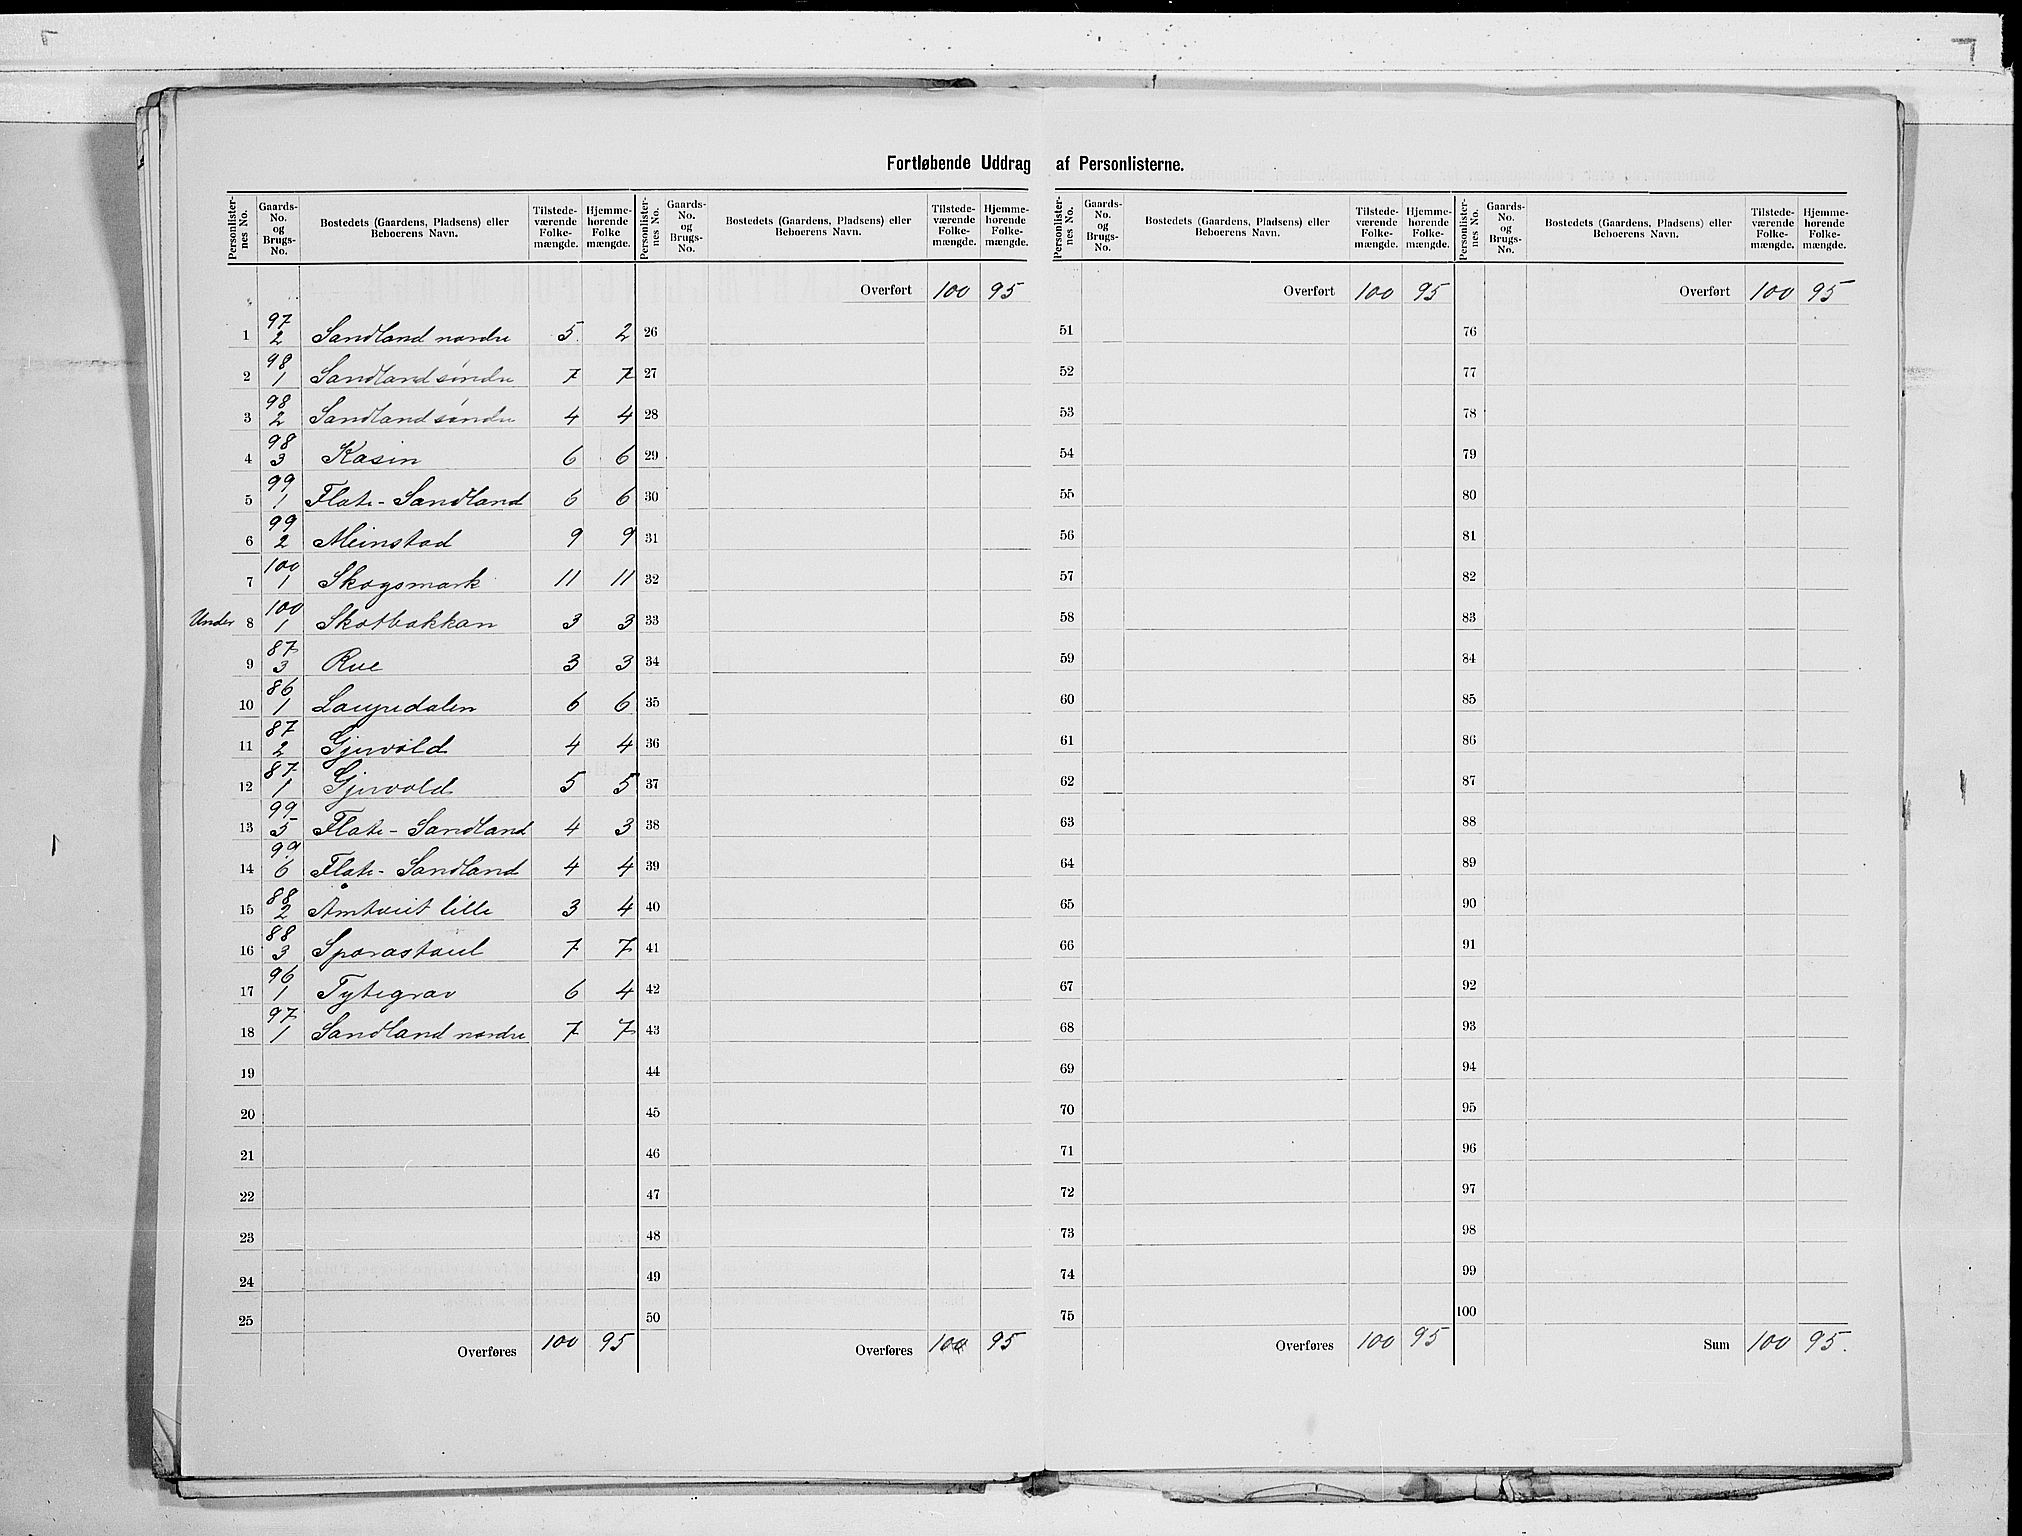 Fortløbende Uddrag af Personlisterne.
Personlister-nes No. Gaards-No. og Brugs-No. Bostedets (Gaardens, Pladsens) eller Beboerens Navn. Tilstede-værende Folke-mængde. Hjemme-hørende Folke mængde.
1 97/2 Sandland nordre 5 2
2 98/1 Sandland søndre 7 7
3 98/2 Sandland søndre 4 4
4 98/3 Kasin 6 6
5 99/1 Flate-Sandland 6 6
6 99/2 Meinstad 9 9
7 100/1 Skogsmark 11 11
Under 8 100/1 Skotbakkan 3 3
9 87/3 Rue 3 3
10 86/1 Laupedalen 6 6
11 87/2 Gjervold 4 4
12 87/1 Gjervold 5 5
13 99/5 Flate-Sandland 4 3
14 99/6 Flate-Sandland 4 4
15 88/2 Åmtveit lille 3 4
16 88/3 Sporastaul 7 7
17 96/1 Tytegrav 6 4
18 97/1 Sandland nordre 7 7
19
20
21
22
23
24
25
Overføres 100 95
Personlister-nes No. Gaards-No. og Brugs-No. Bostedets (Gaardens, Pladsens) eller Beboerens Navn. Tilstede-værende Folke-mængde. Hjemme-hørende Folke-mængde.
Overført 100 95
26
27
28
29
30
31
32
33
34
35
36
37
38
39
40
41
42
43
44
45
46
47
48
49
50
Overføres 100 95
Personlister-nes No. Gaards-No. og Brugs-No. Bostedets (Gaardens, Pladsens) eller Beboerens Navn. Tilstede-værende Folke-mængde. Hjemme-hørende Folke-mængde.
Overført 100 95
51
52
53
54
55
56
57
58
59
60
61
62
63
64
65
66
67
68
69
70
71
72
73
74
75
Overføres 100 95
Personlister-nes No. Gaards-No. og Brugs-No. Bostedets (Gaardens, Pladsens) eller Beboerens Navn. Tilstede-værende Folke-mængde. Hjemme-hørende Folke-mængde.
Overført 100 95
76
77
78
79
80
81
82
83
84
85
86
87
88
89
90
91
92
93
94
95
96
97
98
99
100
Sum 100 95.